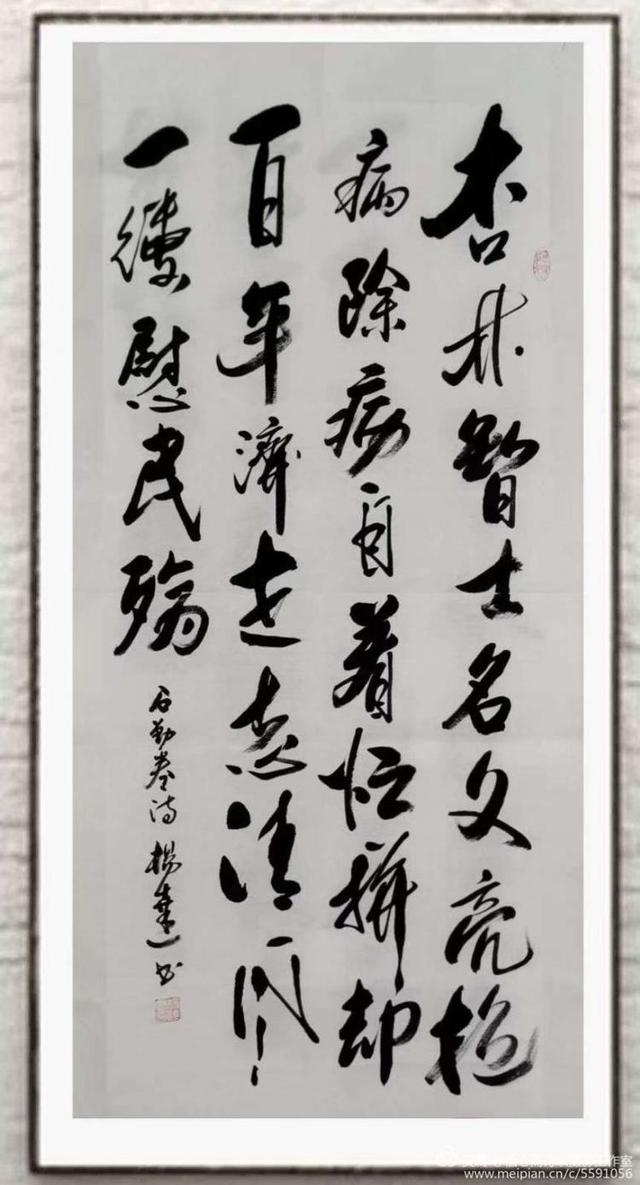 杏林智士名文亮抢
病除疡自着忙拼却
百年濟世志清風
一縷慰民殇
石勤奎诗 楊達书
作室
www.meipian.cn/c/5591056